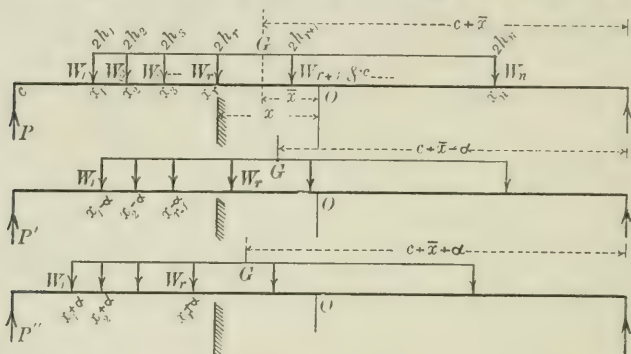 c + x̄
2h₁ 2h₂ 2h₃ 2hᵣ G 2hᵣ₊₁ 2hₙ
W₁ W₂ W₃ --- Wᵣ Wᵣ₊₁ &c Wₙ
c x₁ x₂ x₃ xᵣ x̄ O xₙ
x
P
c + x̄ - α
G
W₁ Wᵣ
x₁-α x₂-α xᵣ₋₁-α O
P′
c + x̄ + α
G
W₁ Wᵣ
x₁+α x₂+α xᵣ+α O
P″